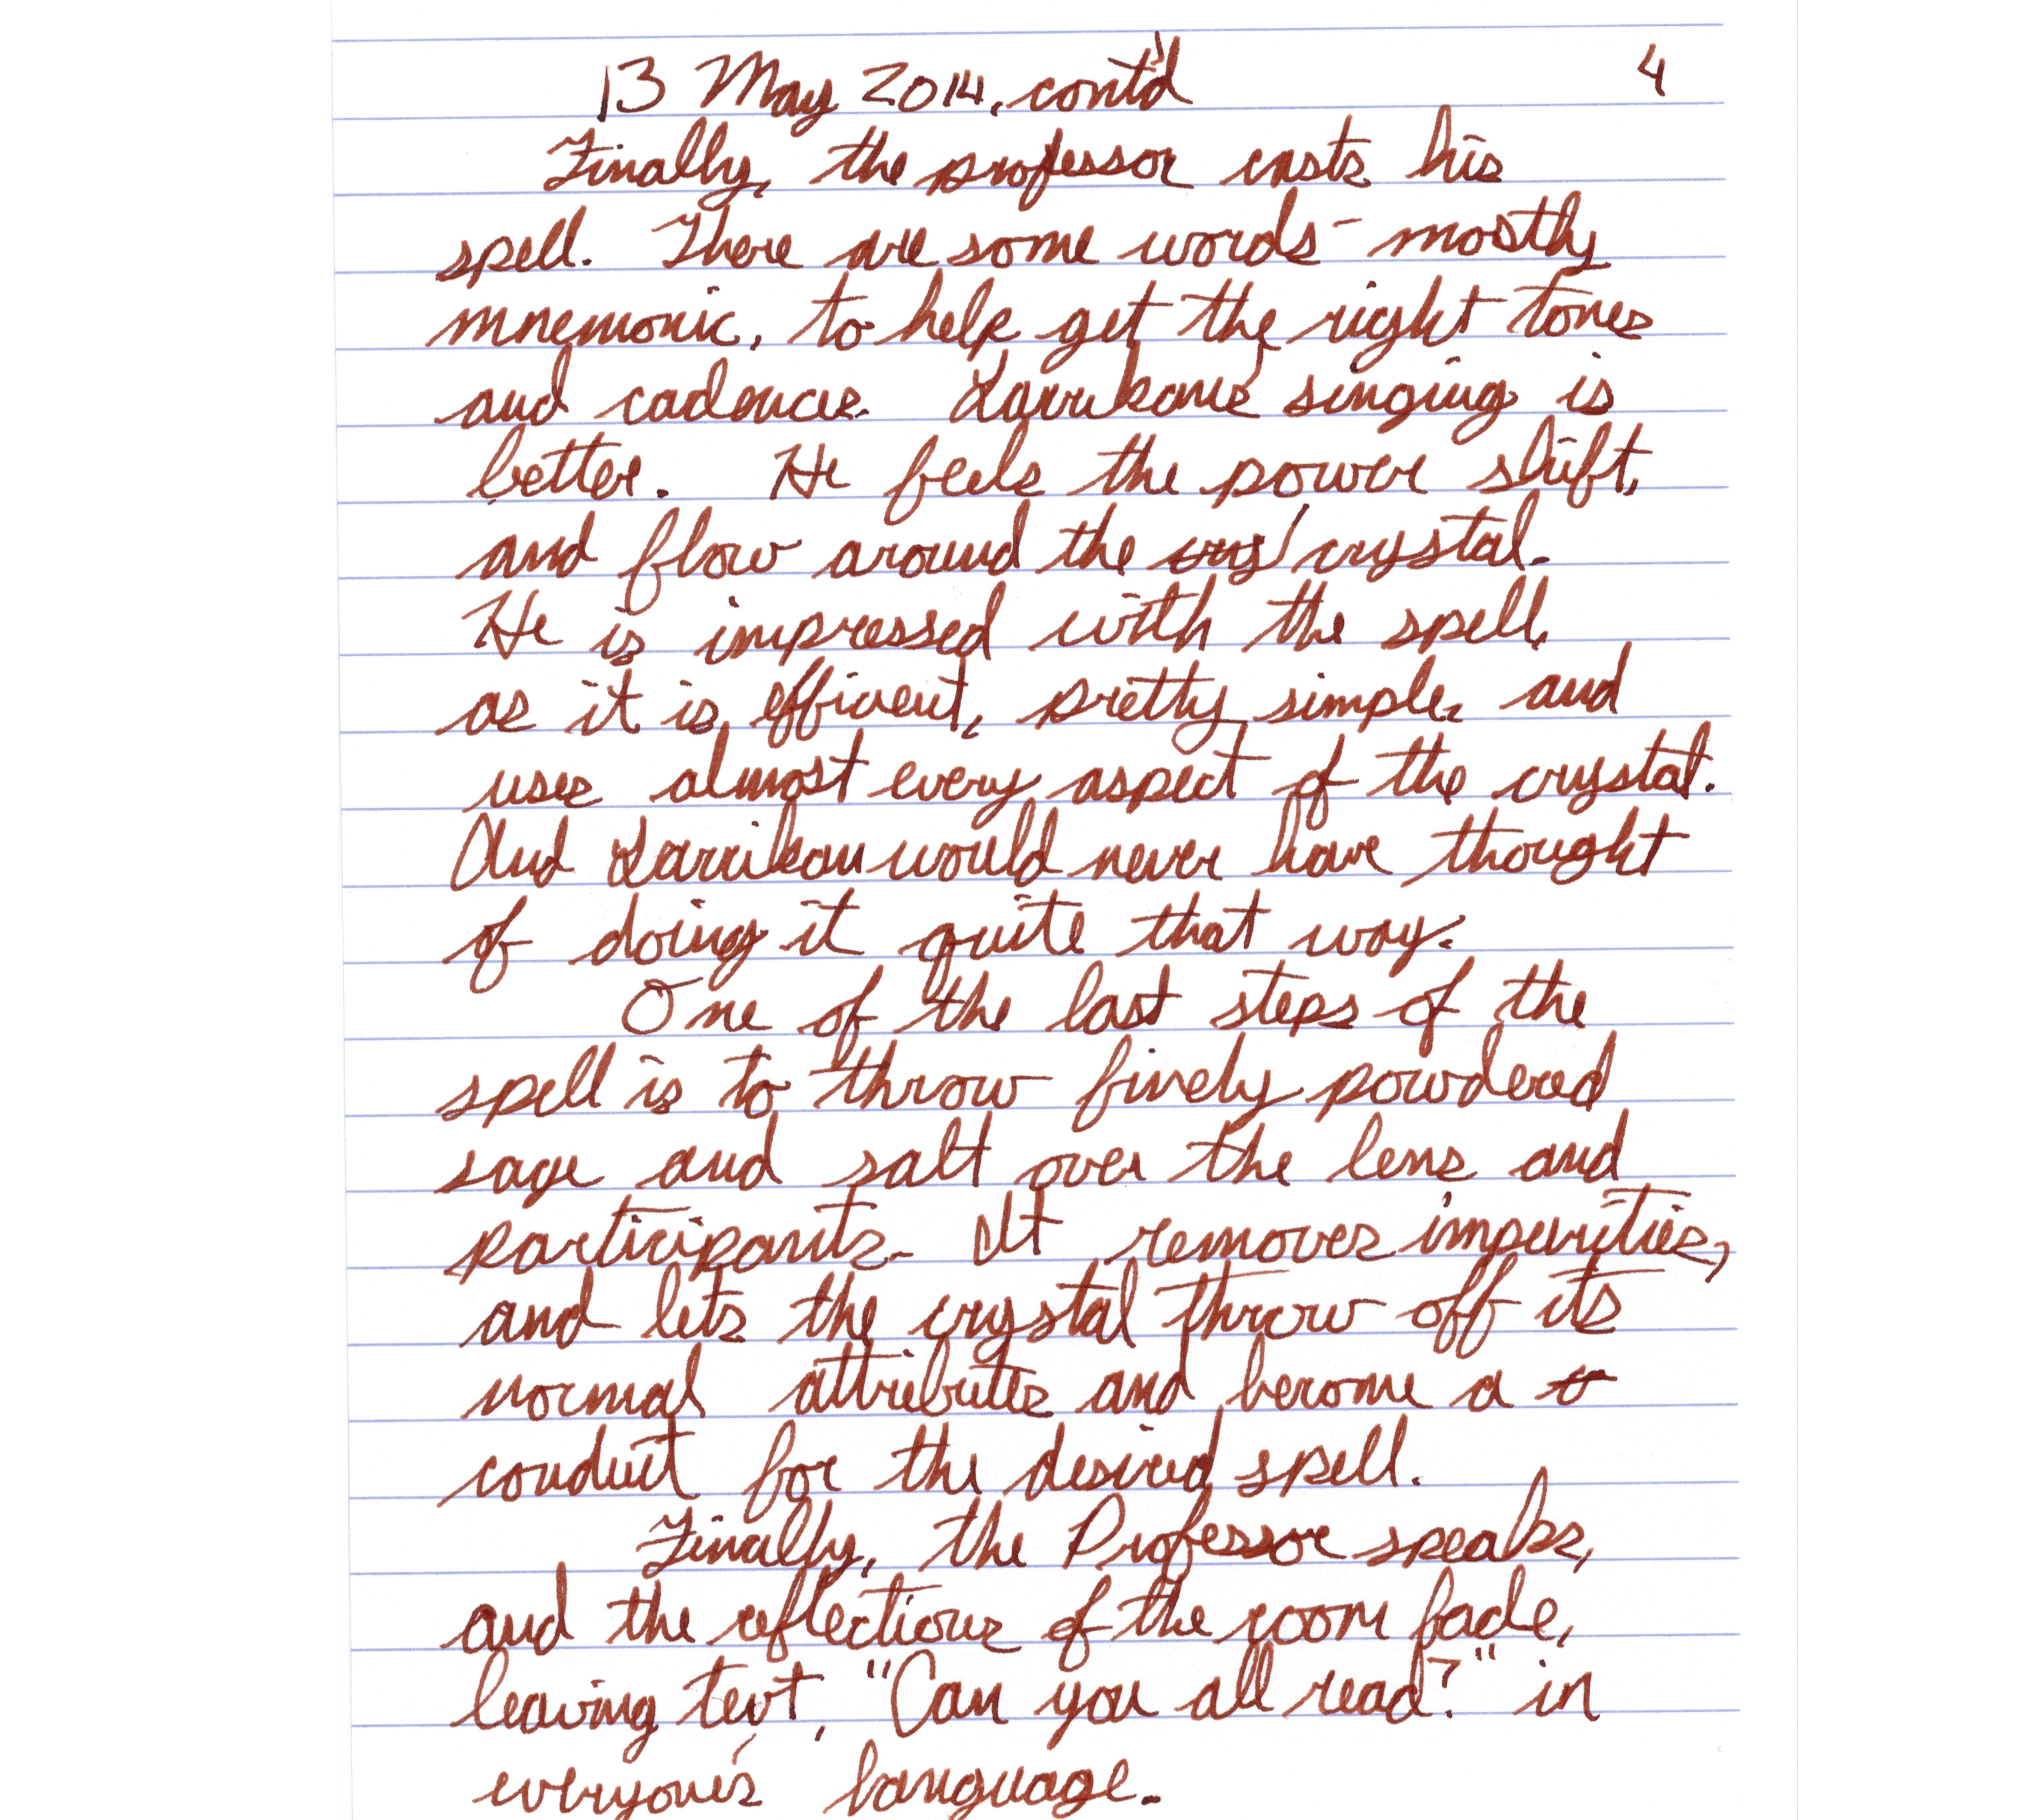 13 May 2014, cont'd 4
Finally, the professor casts his
spell. There are some words - mostly
mnemonic, to help get the right tones
and cadences. Larrikane's singing is
better. He feels the power shift,
and flow around the crys crystal.
He is impressed with the spell,
as it is efficient, pretty simple, and
uses almost every aspect of the crystal.
And Larrikan would never have thought
of doing it quite that way.
One of the last steps of the
spell is to throw finely powdered
sage and salt over the lens and
participants. It removes impurities,
and lets the crystal throw off its
normal attributes and become a
conduit for the desired spell.
Finally, the Professor speaks,
and the reflections of the room fade,
leaving text, "Can you all read?" in
everyone's language.